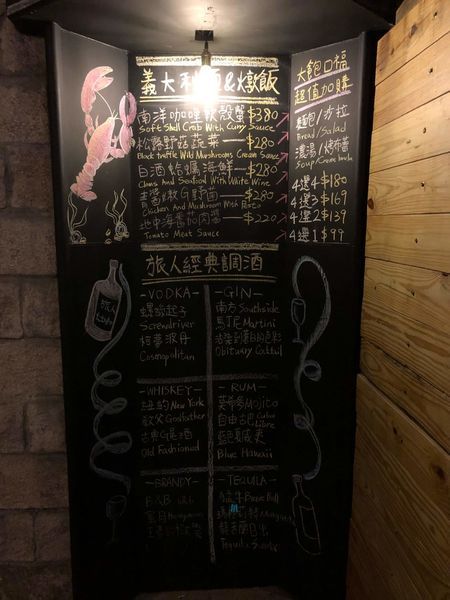 義大利麵&燉飯
南洋咖哩軟殼蟹 $380
Soft Shell Crab With Curry Sauce
松露野菇蔬菜 — $280
Black truffle Wild Mushrooms Cream Sauce
白酒蛤蠣海鮮 — $280
Clams And Seafood With White Wine
青醬嫩G野菌 — $280
Chicken And Mushroom With Pesto
地中海番茄肉醬 — $220
Tomato Meat Sauce
大飽口福
超值加購
麵包/沙拉
Bread/Salad
濃湯/烤布蕾
Soup/Creme brulee
4選4 $180
4選3 $169
4選2 $139
4選1 $99
旅人經典調酒
-VODKA-
螺絲起子
Screwdriver
柯夢波丹
Cosmopolitan
-GIN-
南方Southside
馬丁尼Martini
Obituary Cocktail
-WHISKEY-
紐約New York
教父Godfather
古典G尾酒
Old Fashioned
-RUM-
莫希多Mojito
自由古巴Cuba Libre
藍色夏威夷
Blue Hawaii
-BRANDY-
B&B
-TEQUILA-
猛牛Brave Bull
龍舌蘭日出
Tequila Sunrise
旅人